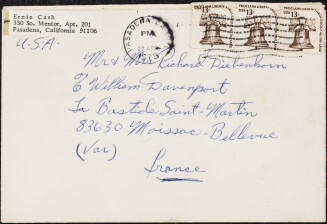 Ernie Cash
330 So. Mentor, Apt. 201
Pasadena, California 91106
U.S.A.
PASADENA, CA
PM
PROCLAIM LIBERTY
USA 13c
USA 13c
USA 13c
Mr & Mrs Richard Diebenkorn
c/o William Davenport
La Bastide Saint-Martin
83630 Moissac-Bellevue
(Var)
France